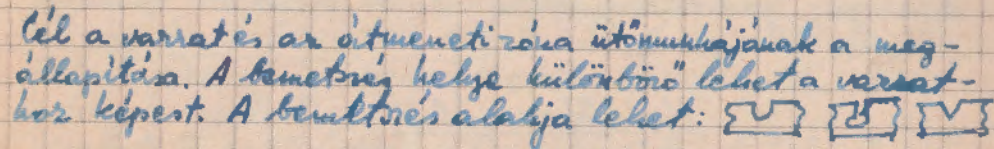 Cél a varrat és az átmeneti zóna ütőmunkájának a meg-
állapítása. A bemetszés helye különböző lehet a varrat-
hoz képest. A bemetszés alakja lehet: